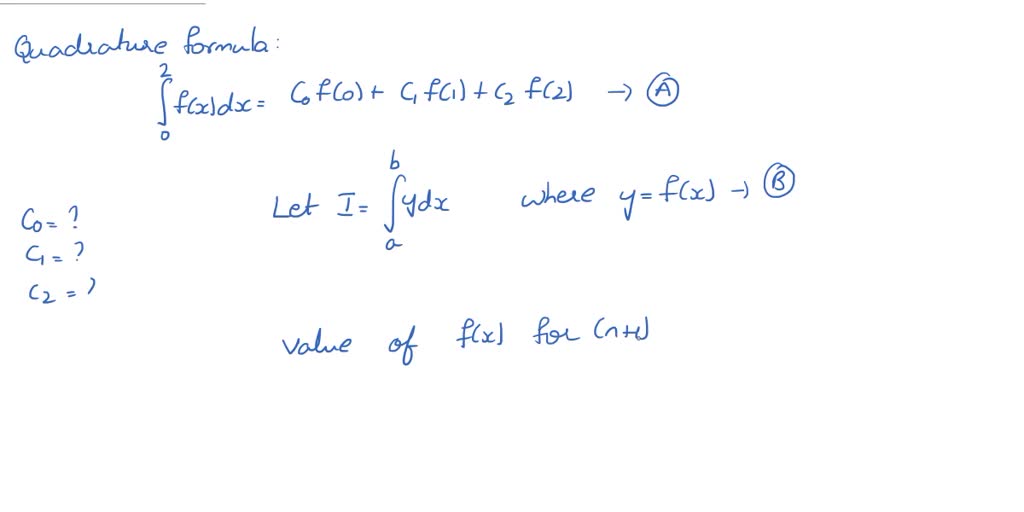 Quadrature formula:
∫₀² f(x)dx = C₀ f(0) + C₁ f(1) + C₂ f(2) → Ⓐ
Let I = ∫ₐᵇ ydx where y = f(x) → Ⓑ
C₀ = ?
C₁ = ?
C₂ = ?
value of f(x) for (n+1)